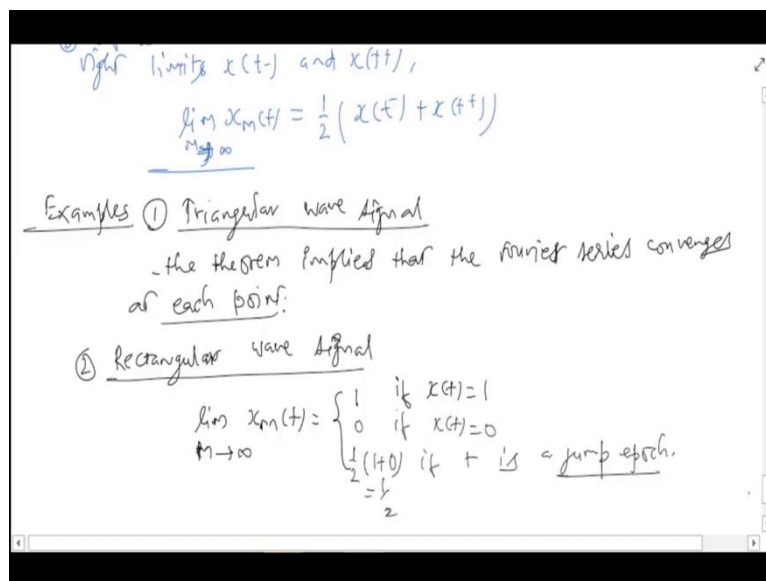 right limits x(t-) and x(t+),
lim x_M(t) = 1/2 ( x(t-) + x(t+) )
M→∞
Examples ① Triangular wave signal
- the theorem implies that the Fourier series converges
at each point.
② Rectangular wave signal
lim x_M(t) = { 1 if x(t)=1
M→∞ 0 if x(t)=0
1/2 (1+0) if t is a jump epoch.
= 1/2